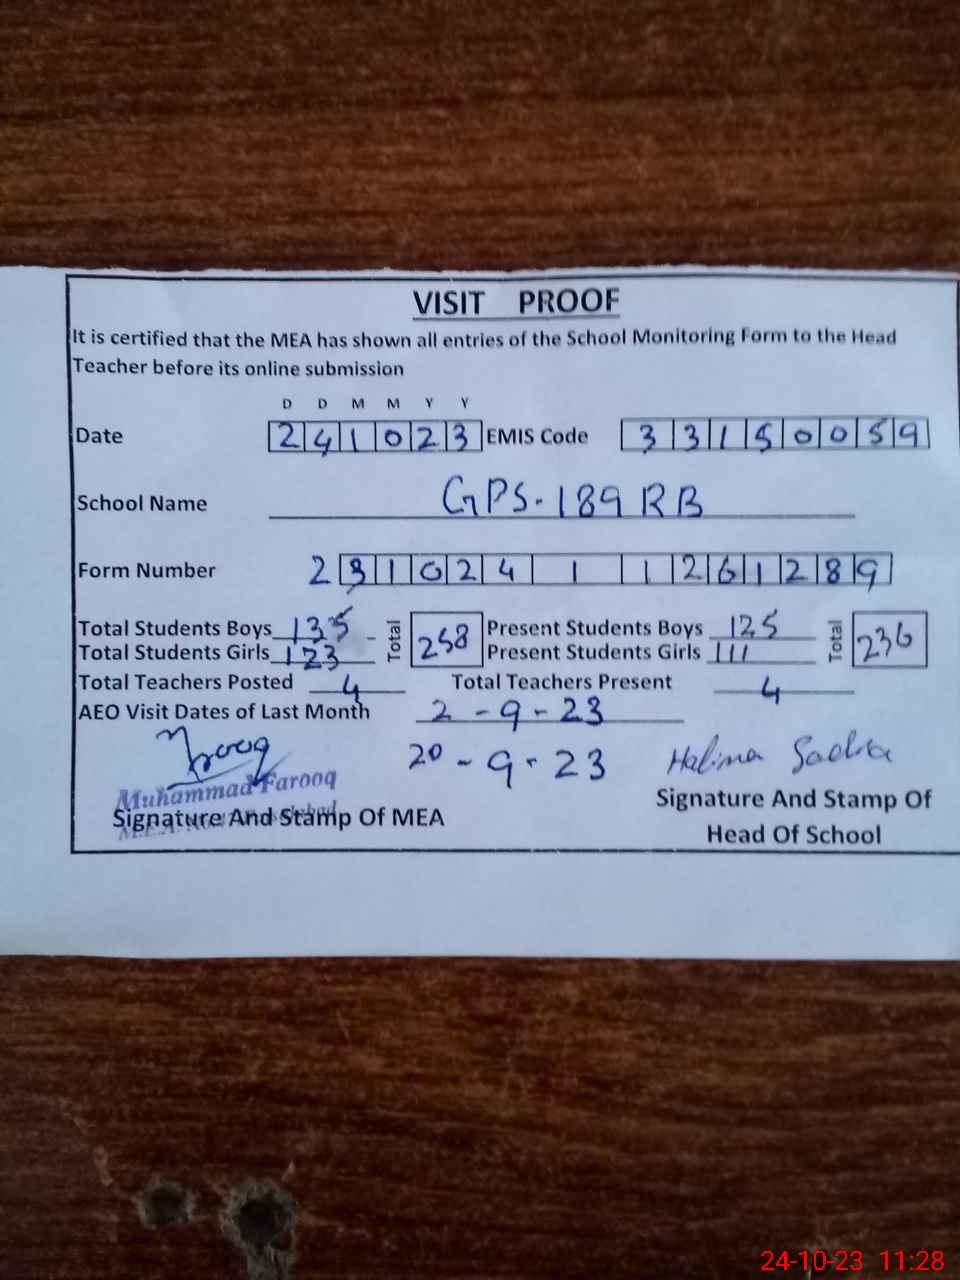 VISIT PROOF
It is certified that the MEA has shown all entries of the School Monitoring Form to the Head
Teacher before its online submission
D D M M Y Y
Date 241023 EMIS Code 33150059
School Name GPS-189 RB
Form Number 23102411261289
Total Students Boys 135 Total 258 Present Students Boys 125 Total 236
Total Students Girls 123 Present Students Girls 111
Total Teachers Posted 4 Total Teachers Present 4
AEO Visit Dates of Last Month 2-9-23
20-9-23
Farooq Halima Sadia
Muhammad Farooq
Signature And Stamp Of MEA
Signature And Stamp Of
Head Of School
24-10-23 11:28